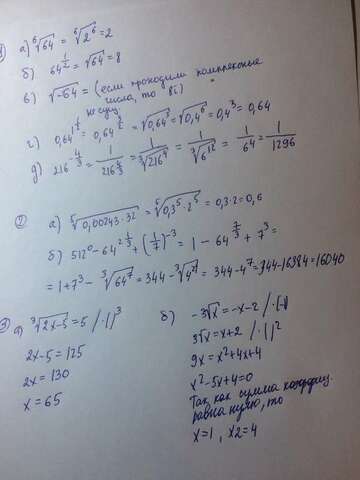 1 а) ⁶√64 = ⁶√2⁶ = 2
б) 64^(1/2) = √64 = 8
в) √-64 = (если проходили комплексные
не сущ. числа, то 8i)
г) 0,64^(1 1/2) = 0,64^(3/2) = √0,64³ = √0,4⁶ = 0,4³ = 0,64
д) 216^(-4/3) = 1/216^(4/3) = 1/³√216⁴ = 1/³√6¹² = 1/64 = 1/1296
2 а) ⁵√0,00243·32 = ⁵√0,3⁵·2⁵ = 0,3·2 = 0,6
б) 512⁰ - 64^(2 1/3) + (1/7)⁻³ = 1 - 64^(7/3) + 7³ =
= 1 + 7³ - ³√64⁷ = 344 - ³√4²¹ = 344 - 4⁷ = 344 - 16384 = 16040
3 а) ³√2x-5 = 5 / ·()³
2x-5 = 125
2x = 130
x = 65
б)
-3√x = -x-2 / ·(-1)
3√x = x+2 / ·()²
9x = x²+4x+4
x²-5x+4=0
Так как сумма коэффиц.
равна нулю, то
x=1, x2=4